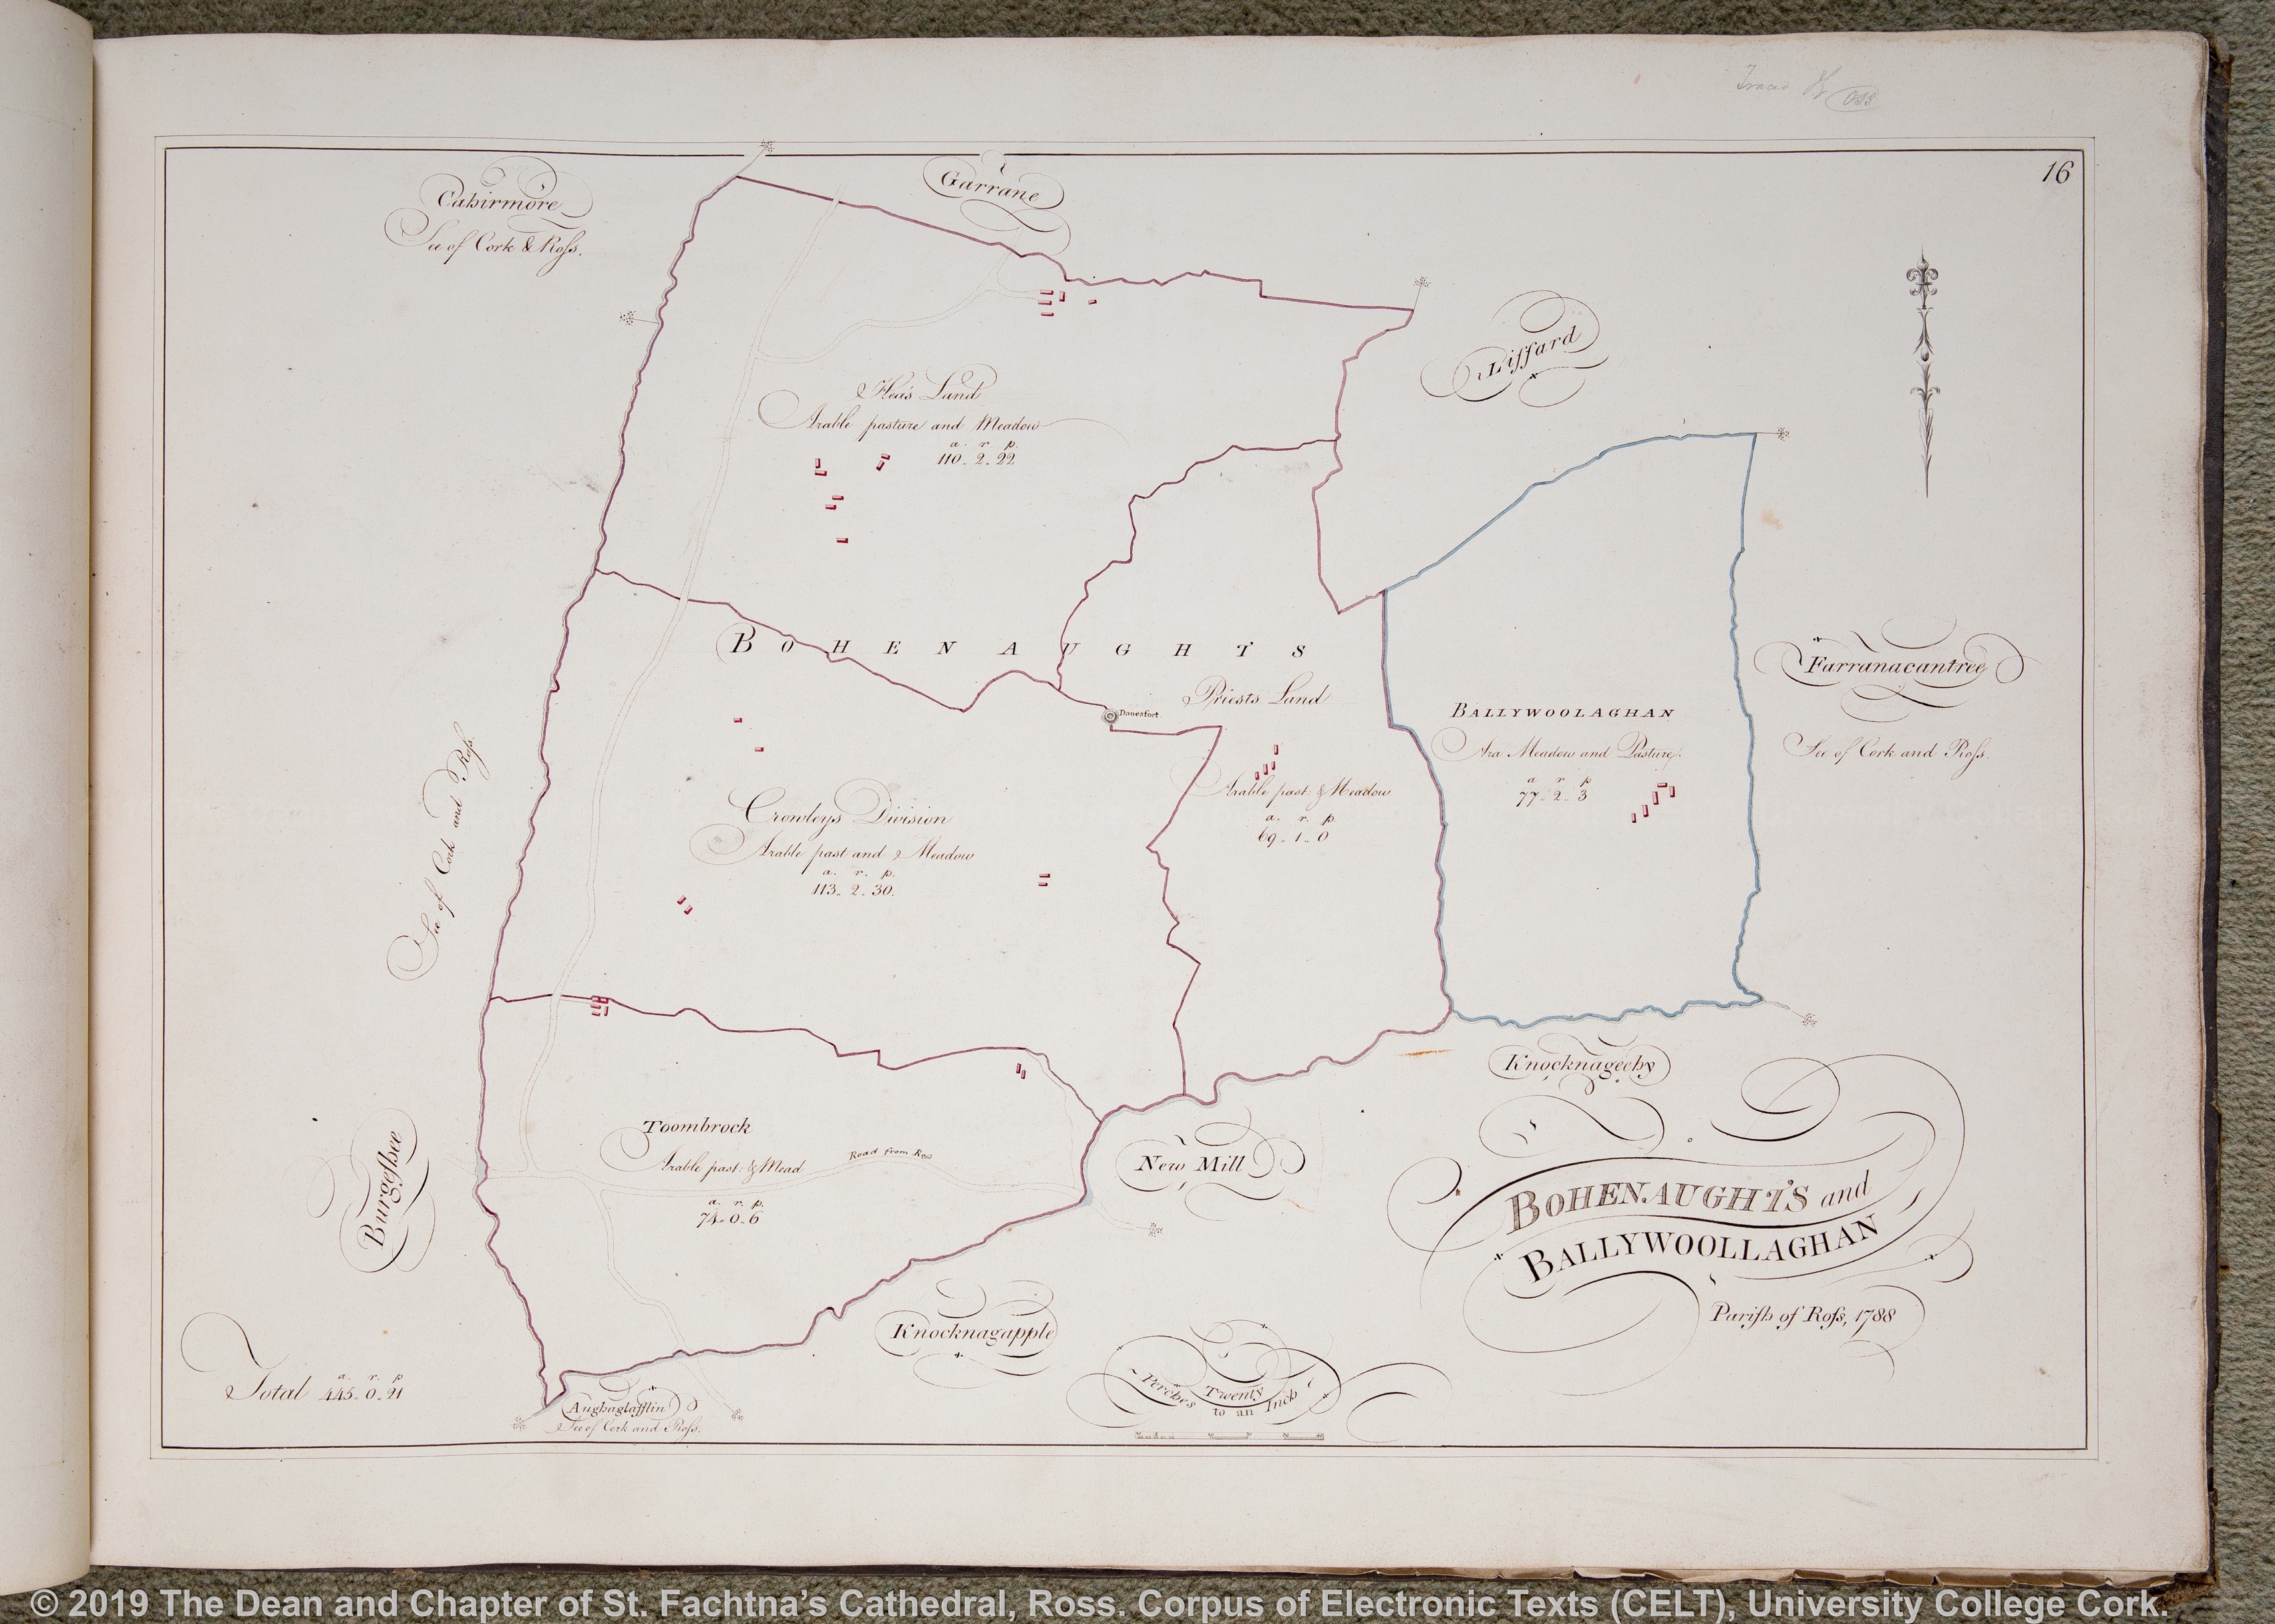 Traced
OSS
16
Cahirmore
See of Cork & Roſs.
Garrane
Liſſard
Hea's Land
Arable pasture and Meadow
a. r. p.
110. 2. 22
BOHENAUGHTS
Priests Land
Danesfort.
Arable past: & Meadow
a. r. p.
69. 1. 0
BALLYWOOLAGHAN
Ara Meadow and Pasture.
a r p
77. 2. 3
Farranacantree
See of Cork and Roſs.
See of Cork and Roſs.
Crowleys Division
Arable past and & Meadow
a. r. p.
113. 2. 30.
Toombrock
Arable past: & Mead
a. r. p.
74. 0. 6
Road from Ross
Burgeſhee
New Mill
Knocknageehy
Knocknagapple
BOHENAUGHTS and
BALLYWOOLLAGHAN
Pariſh of Roſs, 1788
Total
a. r. p
445. 0. 21
Aughaglaſſlin
See of Cork and Roſs.
Perches Twenty
to an Inch
© 2019 The Dean and Chapter of St. Fachtna’s Cathedral, Ross. Corpus of Electronic Texts (CELT), University College Cork.